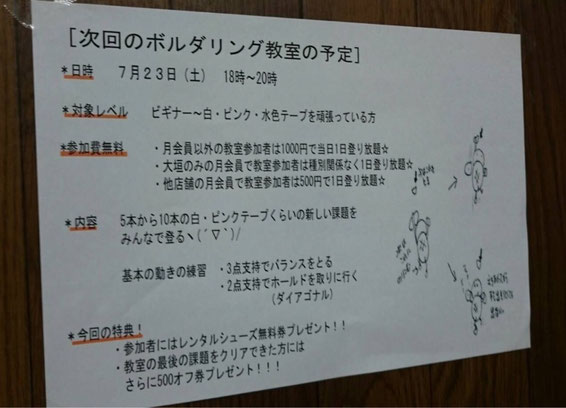 ［次回のボルダリング教室の予定］
＊日時　７月２３日（土）　18時～20時
＊対象レベル　ビギナー～白・ピンク・水色テープを頑張っている方
＊参加費無料　・月会員以外の教室参加者は1000円で当日1日登り放題☆
・大垣のみの月会員で教室参加者は種別関係なく1日登り放題☆
・他店舗の月会員で教室参加者は500円で1日登り放題☆
＊内容　5本から10本の白・ピンクテープくらいの新しい課題を
みんなで登るヽ(´∇`)/
基本の動きの練習　・3点支持でバランスをとる
・2点支持でホールドを取りに行く
（ダイアゴナル）
＊今回の特典！
・参加者にはレンタルシューズ無料券プレゼント！！
・教室の最後の課題をクリアできた方には
さらに500オフ券プレゼント！！！